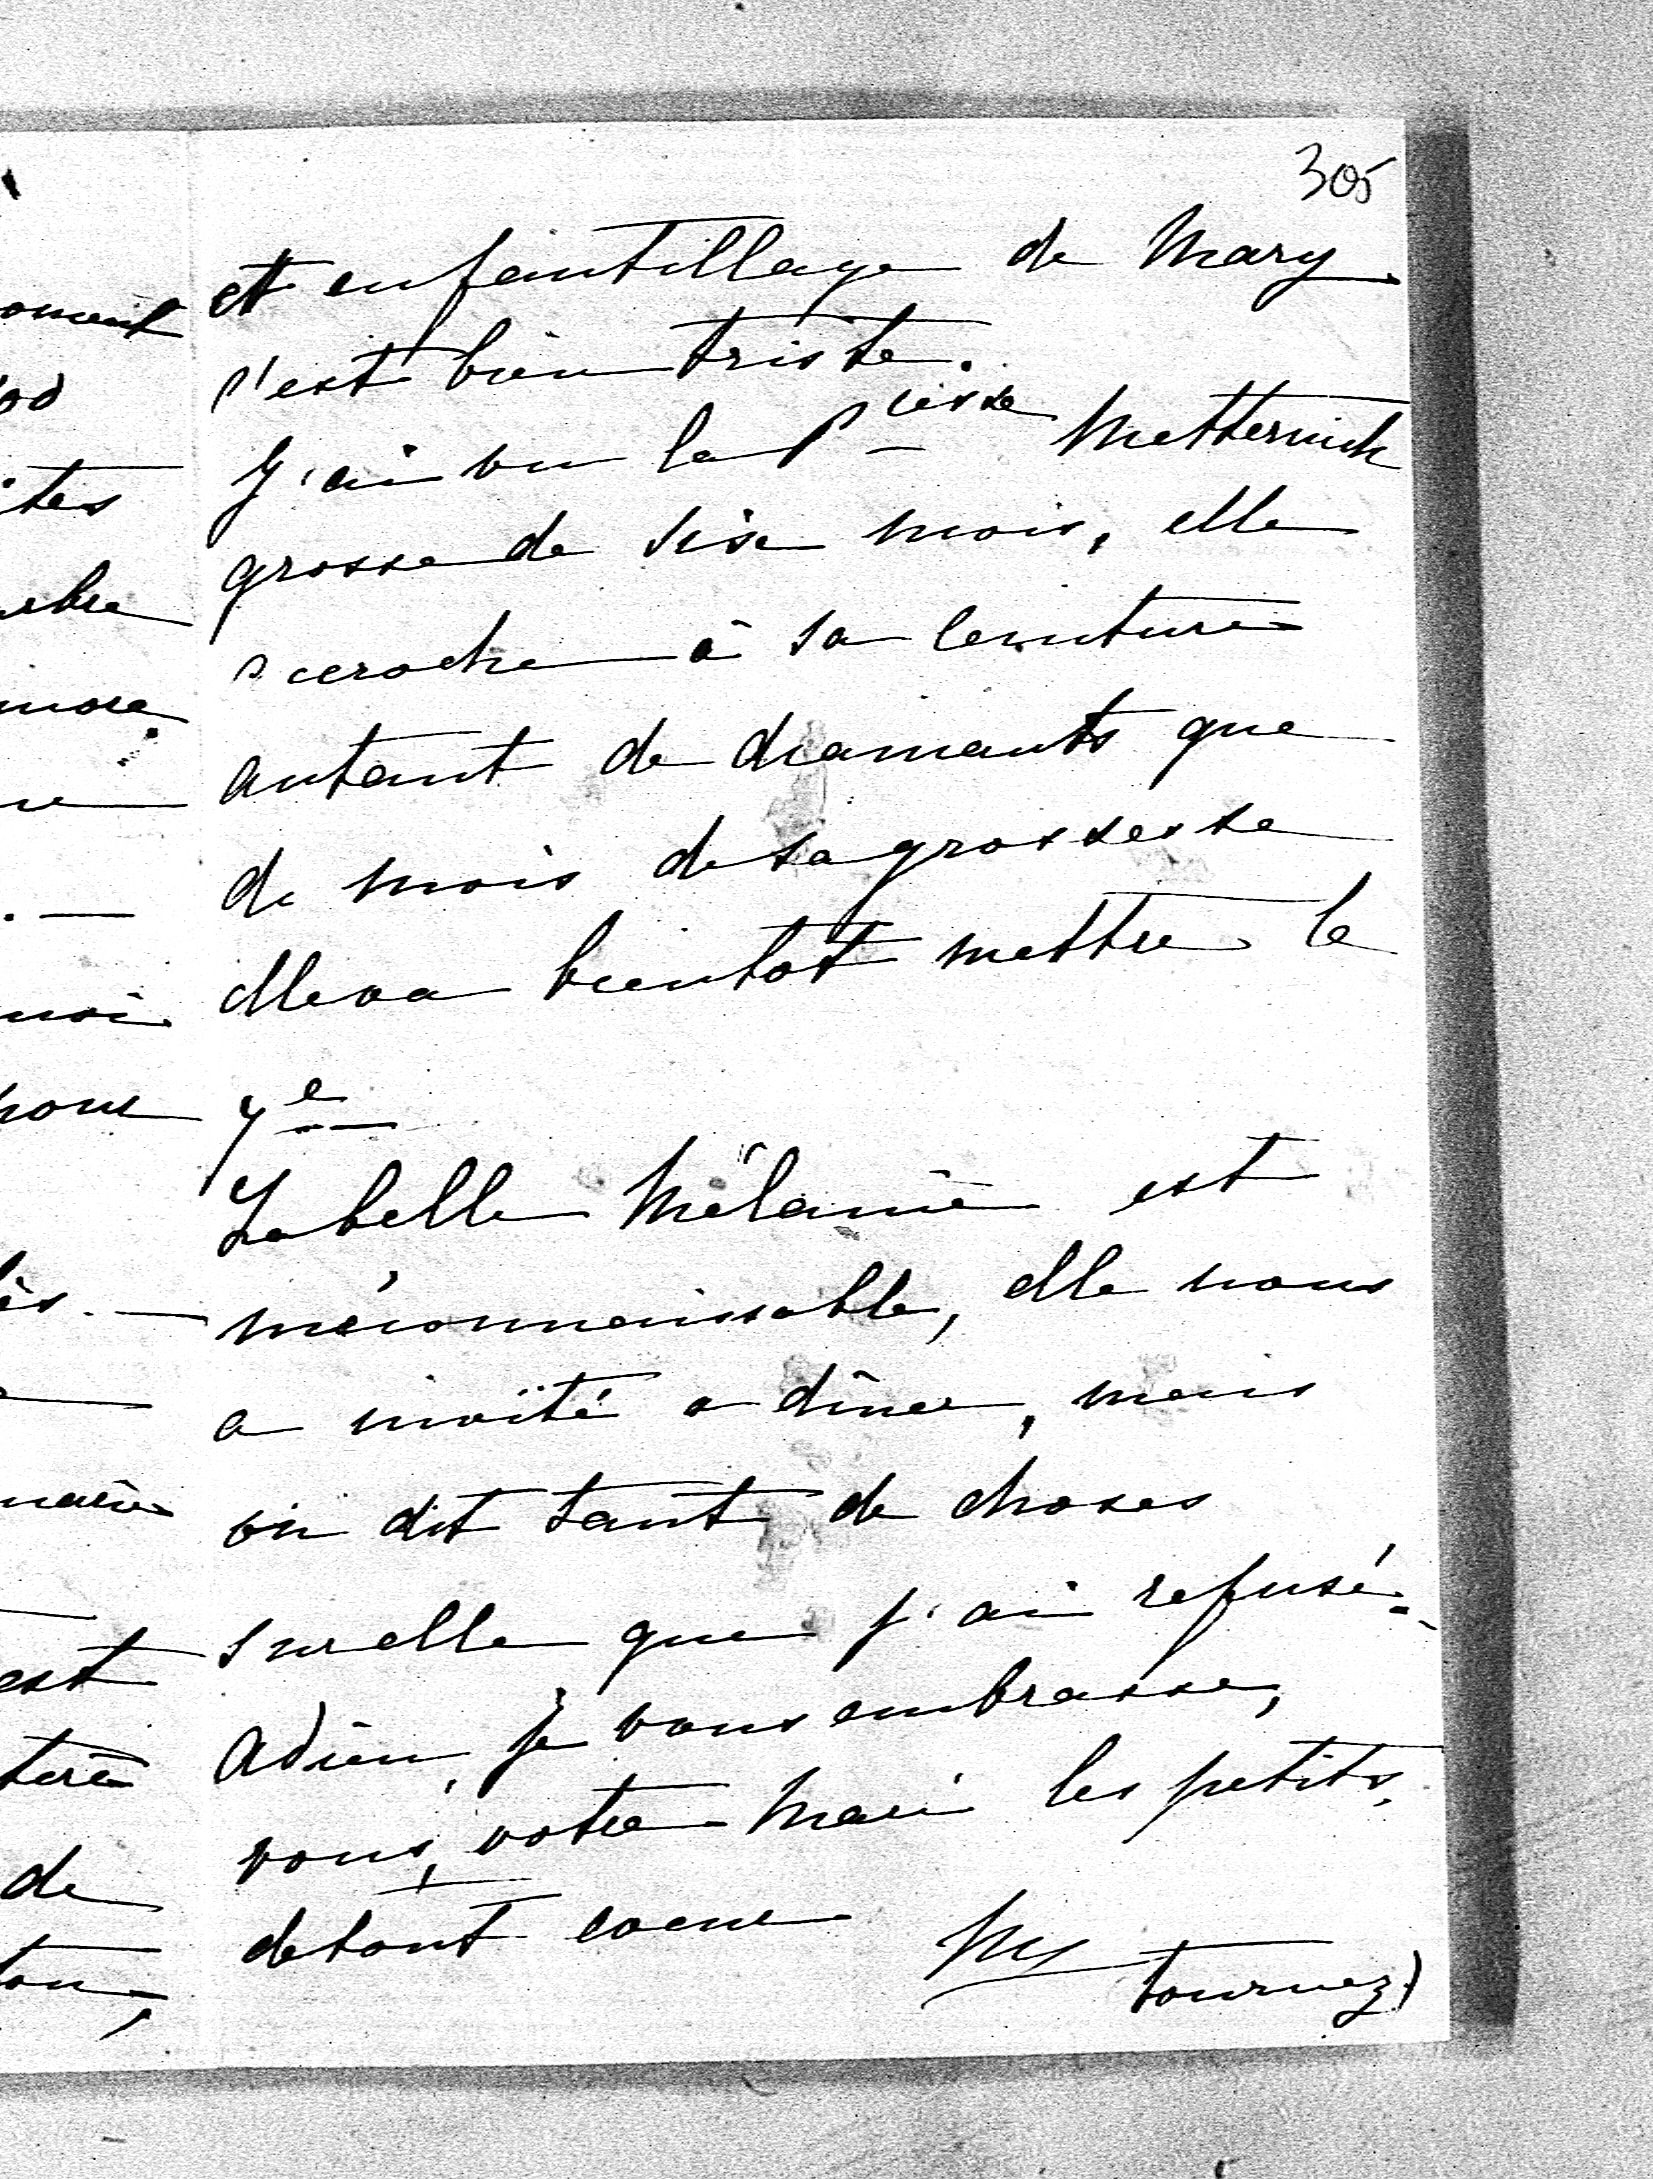 305
et enfantillage de Mary
c'est bien triste.
J'ai vu la Pcesse Metternich
grosse de six mois, elle
accroche à sa ceinture
autant de diamants que
de mois de sa grossesse
elle va bientot mettre le
7e
La belle Mélanie est
méconnaissable, elle nous
a invité a dîner, mais
on dit tant de choses
sur elle que j'ai refusé.
Adieu, je vous embrasse,
vous, votre Mari les petits,
de tout coeur
tournez)
oment
ites
more
moi
pour
est
de